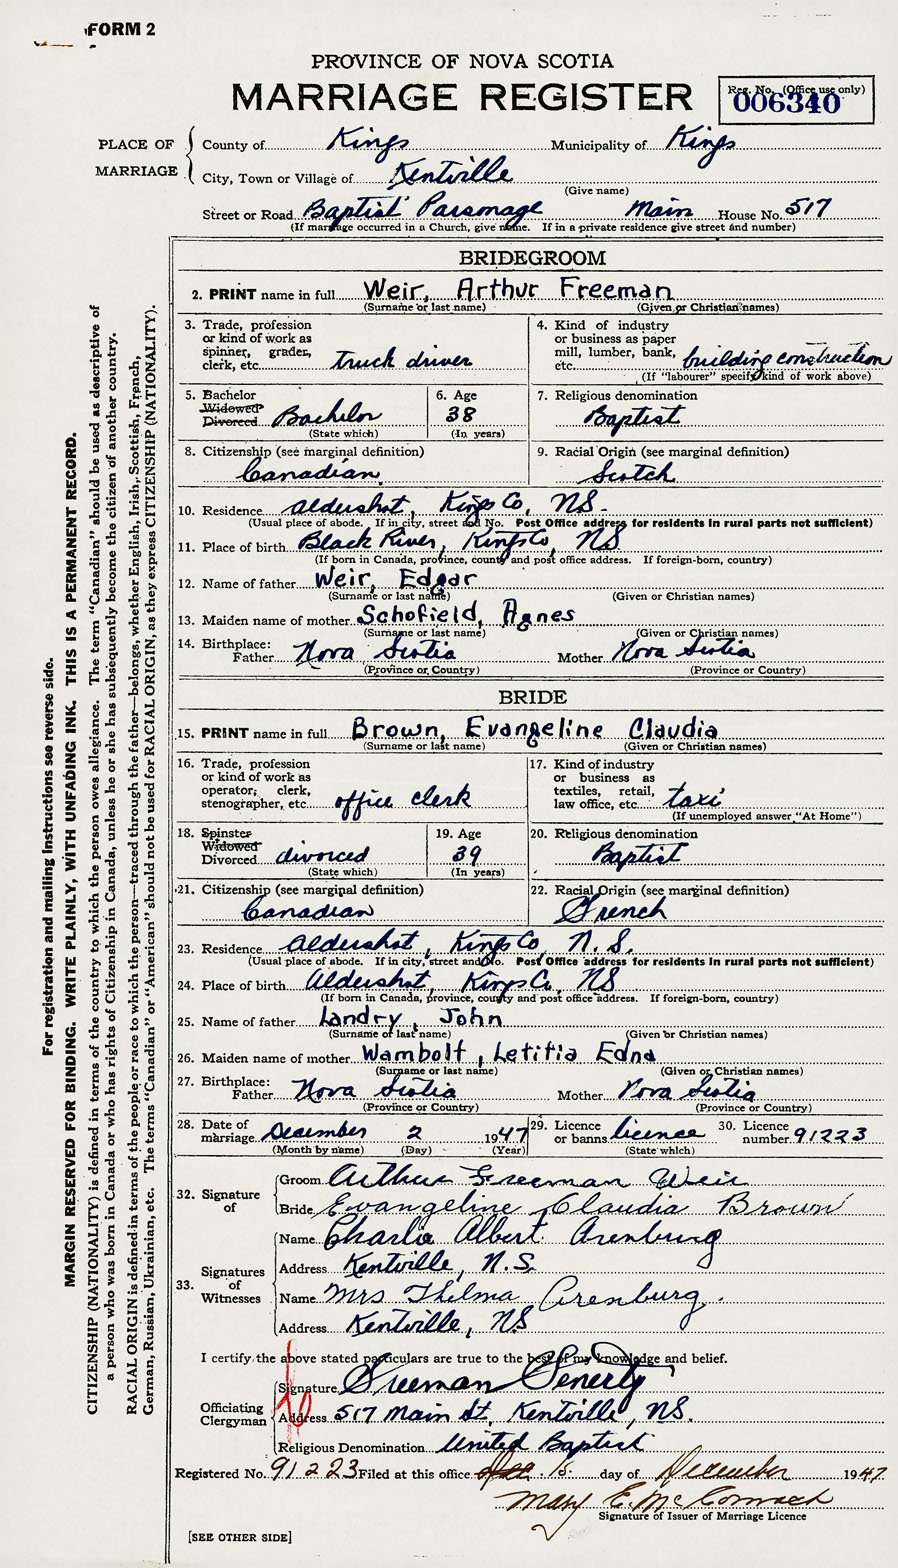 FORM 2
PROVINCE OF NOVA SCOTIA
MARRIAGE REGISTER
Reg. No. (Office use only)
006340
PLACE OF MARRIAGE
County of Kings Municipality of Kings
City, Town or Village of Kentville
(Give name)
Street or Road Baptist Parsonage Main House No. 517
(If marriage occurred in a Church, give name. If in a private residence give street and number)
BRIDEGROOM
2. PRINT name in full Weir, Arthur Freeman
(Surname or last name) (Given or Christian names)
3. Trade, profession or kind of work as spinner, grader, clerk, etc. truck driver
4. Kind of industry or business as paper mill, lumber, bank, etc. building construction
(If "labourer" specify kind of work above)
5. Bachelor Widowed Divorced Bachelor
(State which)
6. Age 38
(In years)
7. Religious denomination Baptist
8. Citizenship (see marginal definition) Canadian
9. Racial Origin (see marginal definition) Scotch
10. Residence Aldershot, Kings Co, NS.
(Usual place of abode. If in city, street and No. Post Office address for residents in rural parts not sufficient)
11. Place of birth Black River, Kings Co, NS
(If born in Canada, province, county and post office address. If foreign-born, country)
12. Name of father Weir, Edgar
(Surname or last name) (Given or Christian names)
13. Maiden name of mother Schofield, Agnes
(Surname or last name) (Given or Christian names)
14. Birthplace: Father Nova Scotia Mother Nova Scotia
(Province or Country) (Province or Country)
BRIDE
15. PRINT name in full Brown, Evangeline Claudia
(Surname or last name) (Given or Christian names)
16. Trade, profession or kind of work as operator, clerk, stenographer, etc. office clerk
17. Kind of industry or business as textiles, retail, law office, etc. taxi
(If unemployed answer "At Home")
18. Spinster Widowed Divorced divorced
(State which)
19. Age 39
(In years)
20. Religious denomination Baptist
21. Citizenship (see marginal definition) Canadian
22. Racial Origin (see marginal definition) French
23. Residence Aldershot, Kings Co, N.S.
(Usual place of abode. If in city, street and No. Post Office address for residents in rural parts not sufficient)
24. Place of birth Aldershot, Kings Co, NS
(If born in Canada, province, county and post office address. If foreign-born, country)
25. Name of father Landry, John
(Surname or last name) (Given or Christian names)
26. Maiden name of mother Wambolt, Letitia Edna
(Surname or last name) (Given or Christian names)
27. Birthplace: Father Nova Scotia Mother Nova Scotia
(Province or Country) (Province or Country)
28. Date of marriage December 2 1947
(Month by name) (Day) (Year)
29. Licence or banns licence
(State which)
30. Licence number 91223
32. Signature of
Groom Arthur Freeman Weir
Bride Evangeline Claudia Brown
33. Signatures of Witnesses
Name Charlie Albert Arenburg
Address Kentville, N.S.
Name Mrs Thelma Arenburg.
Address Kentville, NS
I certify the above stated particulars are true to the best of my knowledge and belief.
Officiating Clergyman
Signature Freeman Fenerty
Address 517 Main St, Kentville, NS.
Religious Denomination United Baptist
Registered No. 91223 Filed at this office 15 day of December 1947
Mary E. McCormack
Signature of Issuer of Marriage Licence
[SEE OTHER SIDE]
For registration and mailing instructions see reverse side.
MARGIN RESERVED FOR BINDING. WRITE PLAINLY, WITH UNFADING INK. THIS IS A PERMANENT RECORD.
CITIZENSHIP (NATIONALITY) is defined in terms of the country to which the person owes allegiance. The term "Canadian" should be used as descriptive of
a person who was born in Canada or who has rights of Citizenship in Canada, unless he or she has subsequently become the citizen of another country.
RACIAL ORIGIN is defined in terms of the people or race to which the person—traced through the father—belongs, whether English, Irish, Scottish, French,
German, Russian, Ukrainian, etc. The terms "Canadian" or "American" should not be used for RACIAL ORIGIN, as they express CITIZENSHIP (NATIONALITY).